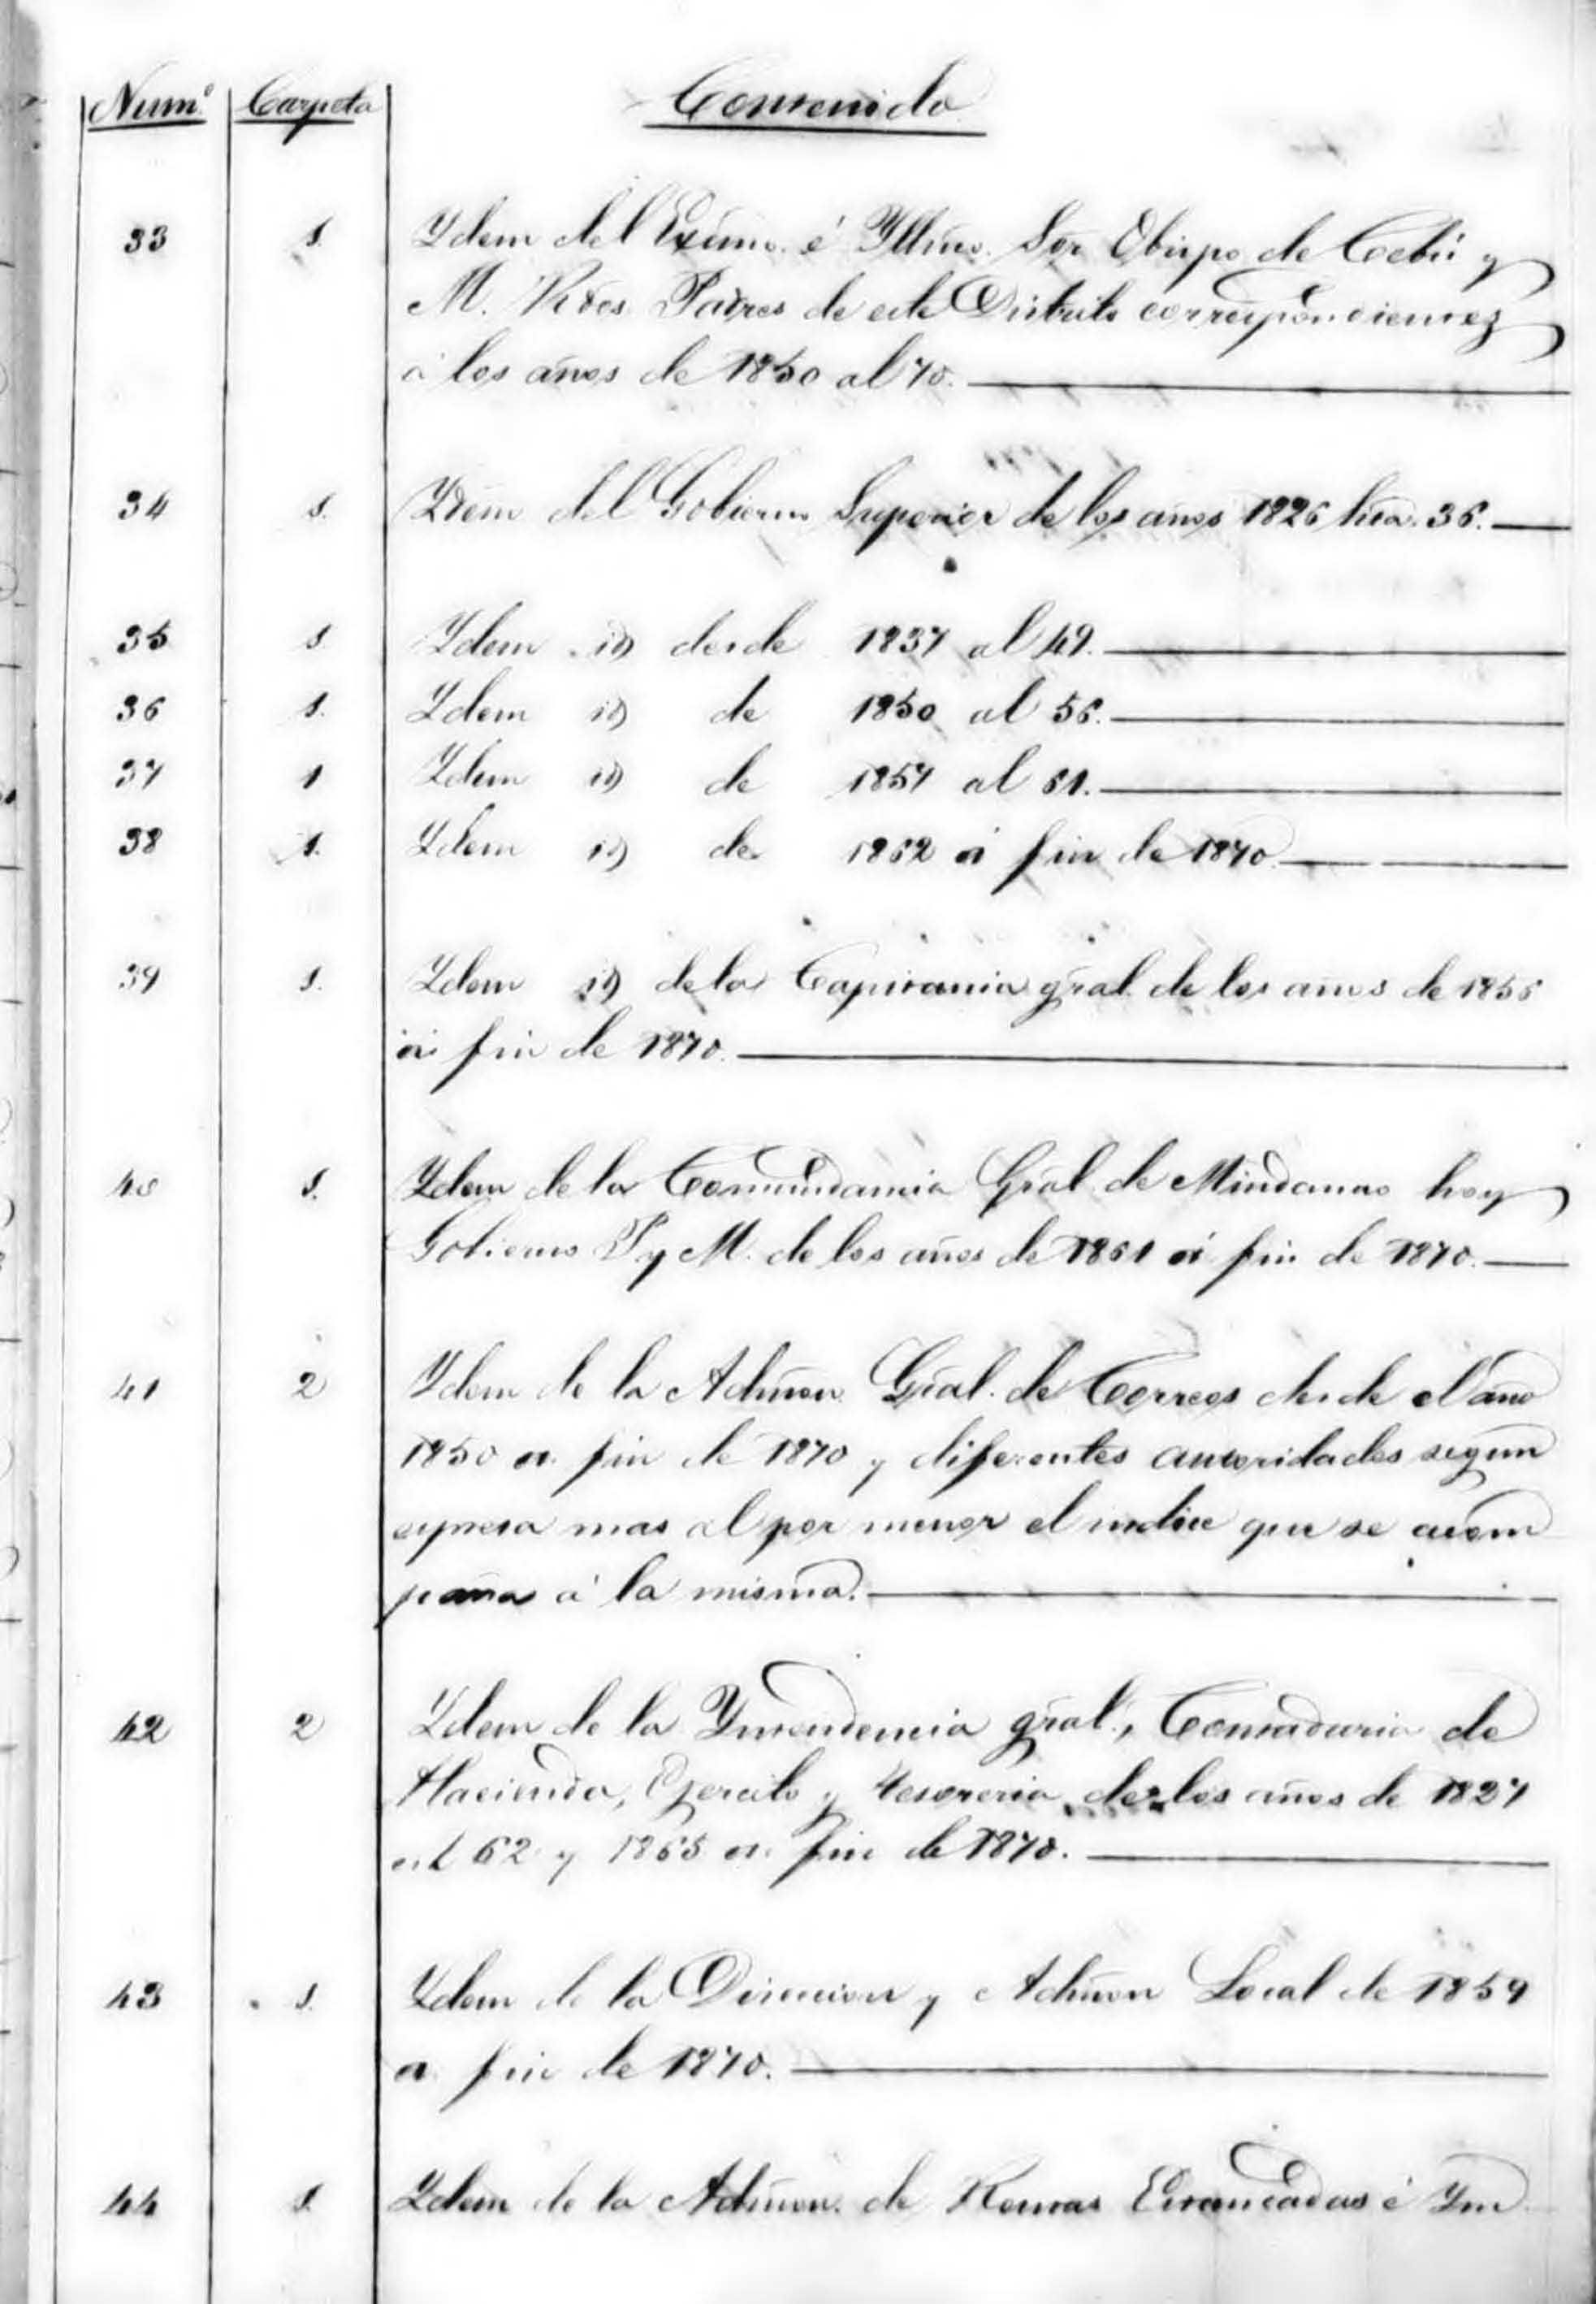 Num.º Carpeta Contenido
33 1. Ydem del Exmo. é Yllmo. Sor Obispo de Cebú y
M. Rdos. Padres de este Distrito correspondientes
á los años de 1850 al 70.
34 1. Ydem del Gobierno Superior de los años 1826 hta. 36.
35 1 Ydem id desde 1837 al 49.
36 1. Ydem id de 1850 al 56.
37 1 Ydem id de 1857 al 61.
38 1. Ydem id de 1862 á fin de 1870
39 1. Ydem id de la Capitania gral. de los años de 1856
á fin de 1870.
40 1. Ydem de la Comandancia Gral. de Mindanao hoy
Gobierno P. y M. de los años de 1861 á fin de 1870.
41 2 Ydem de la Admon. Gral. de Correos desde el año
1850 a fin de 1870 y diferentes autoridades segun
espresa mas al por menor el indice que se acom
paña á la misma.
42 2 Ydem de la Yntendencia gral., Contaduria de
Hacienda, Ejercito y Tesoreria de los años de 1827
al 62 y 1865 a fin de 1870.
43 1. Ydem de la Direccion y Admon Local de 1859
a fin de 1870.
44 1. Ydem de la Admon. de Rentas Estancadas é Ym